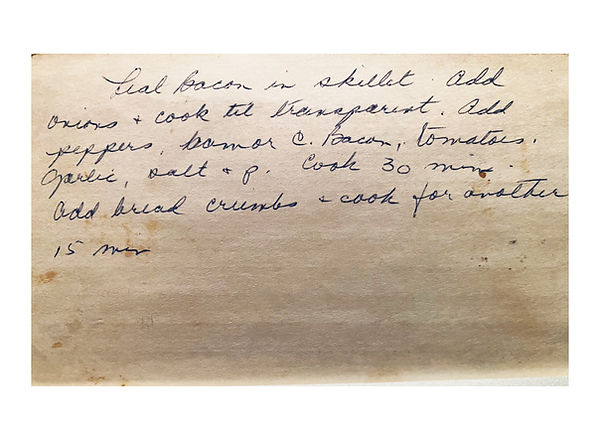 Bacon in skillet. Add
onions + cook til transparent. Add
peppers, ham or C. Bacon, tomatoes.
Garlic, salt + p. Cook 30 min.
Add bread crumbs + cook for another
15 min